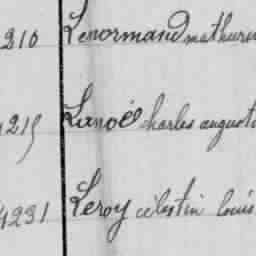 210 Lenormand mathurin
4215 Lanoë charles auguste
4231 Leroy célestin louis